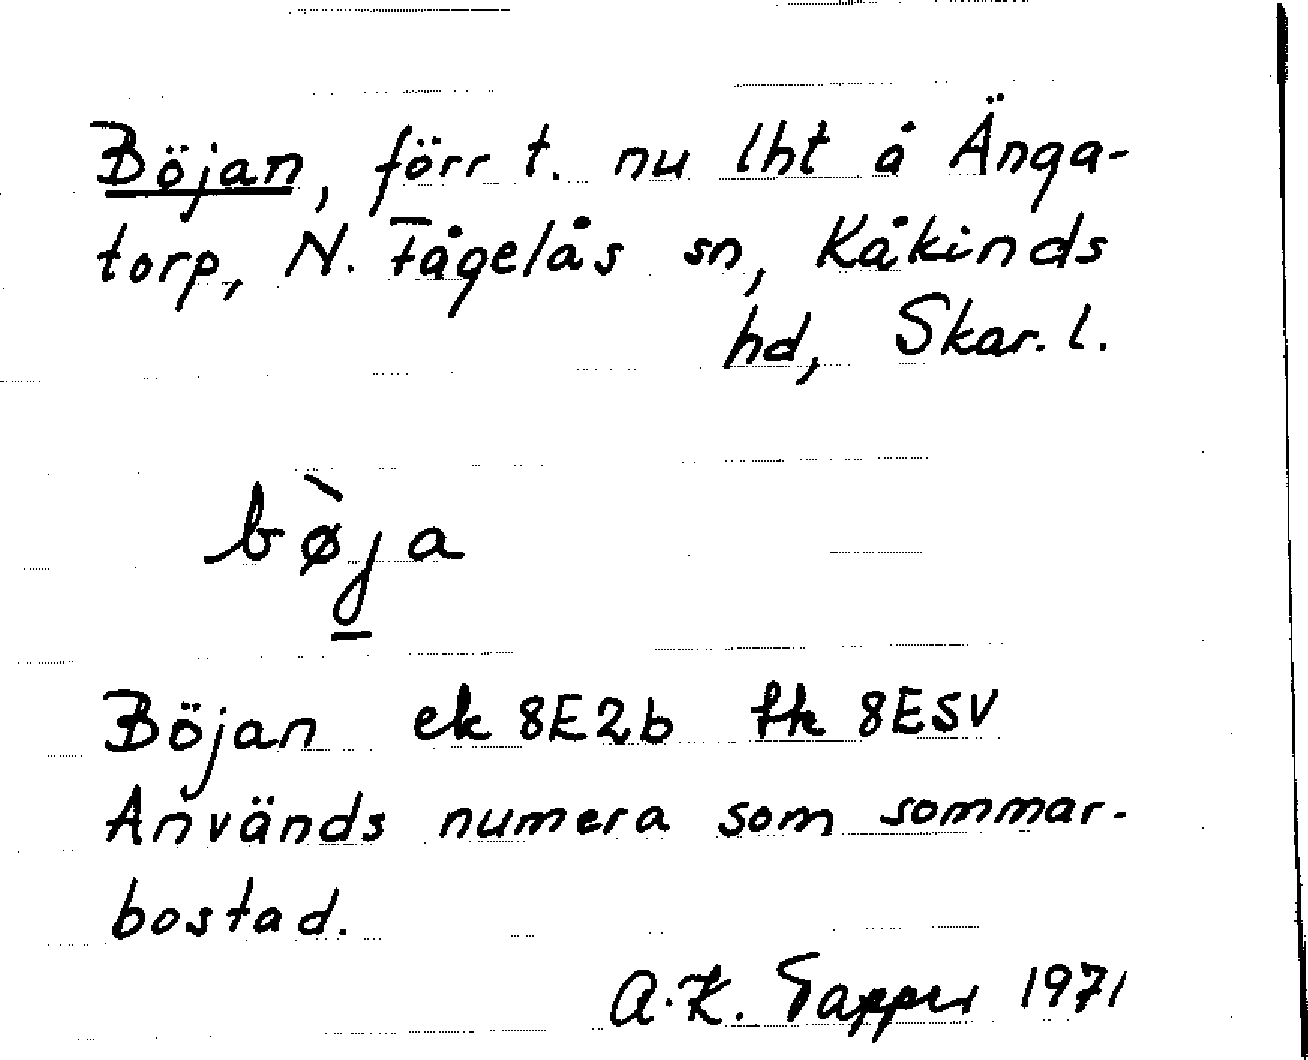 Böjan, förr t. nu lht å Änga-
torp, N. Fågelås sn, Kåkinds
hd, Skar. l.
bø̀ja
Böjan ek 8E2b fk 8E5V
Används numera som sommar-
bostad.
A.K. Tapper 1971